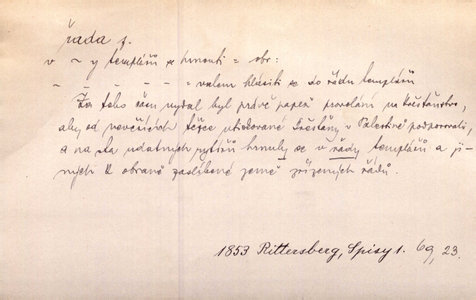 řada f.
v ~ y templářů se hrnouti = obr:
- - - - - = valem hlásiti se do řádu templářů
Za toho času vydal byl právě papež provolání ku křesťanstvu,
aby od nevěřících těžce utiskované křesťany v Palestině podporovali,
a na sta udatných rytířů hrnuly se v řady templářů a ji-
ných k obraně zaslíbené země zřízených řádů.
1853 Rittersberg, Spisy 1. 69, 23.